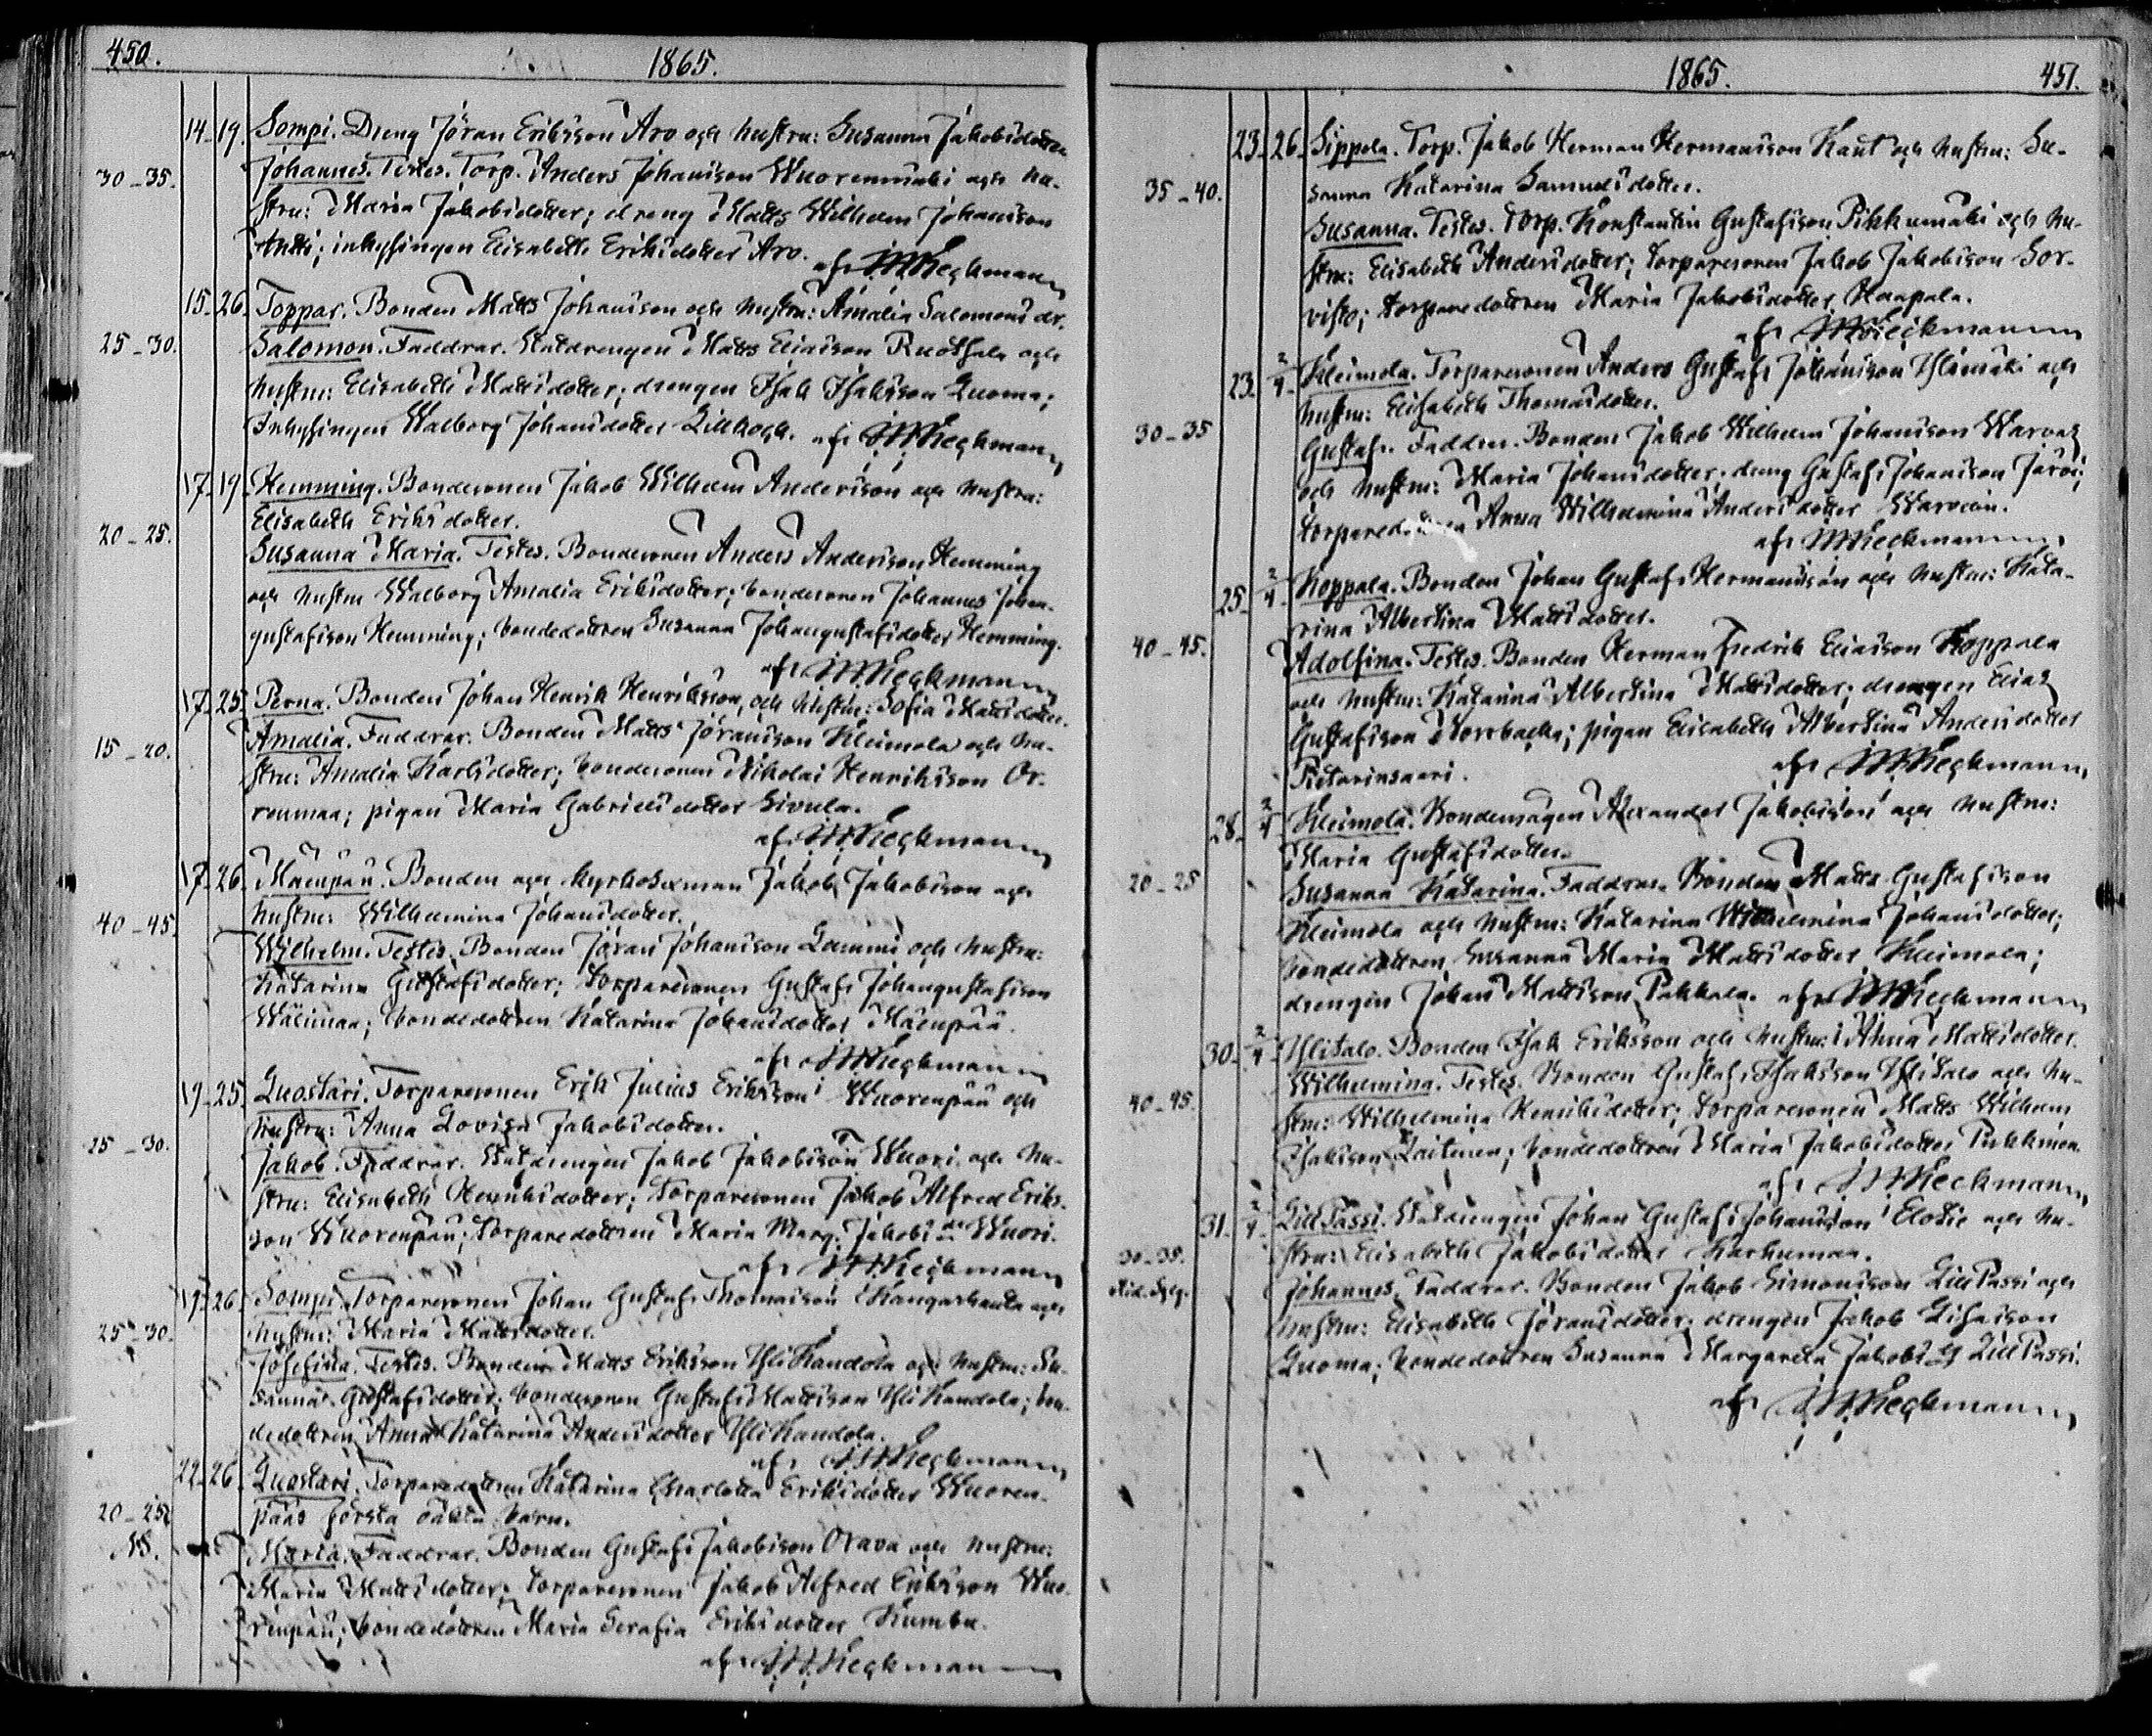 450. 1865.
14. 19. Sompi. Dreng Jöran Eriksson Aro och hustru: Susanna Jakobsdotter
30-35. Johannes. Testes. Torp. Anders Johansson Wuorenmäki och hu-
stru: Maria Jakobsdotter; dreng Matts Wilhelm Johansson
Antti; inhysingen Elisabeth Eriksdotter Aro.
af J M Kieckmann
15. 26. Toppar. Bonden Matts Johansson och hustru: Amalia Salomons dr.
25-30. Salomon. Faddrar. Statdrengen Matts Eliasson Ruotsala och
hustru: Elisabeth Mattsdotter; drengen Isak Isaksson Luoma;
Inhysingen Walborg Johansdotter Lillkock. af J M Kieckmann
17. 19. Hemming. Bondesonen Jakob Wilhelm Andersson och hustru:
Elisabeth Eriksdotter.
20-25. Susanna Maria. Testes. Bondesonen Anders Andersson Hemming
och hustru Walborg Amalia Eriksdotter; bondesonen Johannes Johan-
gustafsson Hemming; bondedottren Susanna Johangustafsdotter Hemming.
af J M Kieckmann
17. 25. Perna. Bonden Johan Henrik Henriksson, och hustru: Sofia Mattsdotter.
15-20. Amalia. Faddrar. Bonden Matts Jöransson Kleimola och hu-
stru: Amalia Karlsdotter; bondesonen Nikolai Henriksson Or-
renmaa; pigan Maria Gabrielsdotter Sivula.
af J M Kieckmann
17. 26. Mäenpää. Bonden och kyrkosexman Jakob Jakobsson och
hustru: Wilhelmina Johansdotter.
40-45. Wilhelm. Testes. Bonden Jöran Johansson Lammi och hustru:
Katarina Gustafsdotter; torparesonen Gustaf Johangustafsson
Wälimaa; bondedottren Katarina Johansdotter Mäenpää.
af J M Kieckmann
19. 25. Luostari. Torparesonen Erik Julius Eriksson Wuorenpää och
hustru: Anna Lovisa Jakobsdotter.
25-30. Jakob. Faddrar. Statdrengen Jakob Jakobsson Wuori och hu-
stru: Elisabeth Henriksdotter; torparesonen Jakob Alfred Eriks-
son Wuorenpää; torparedottren Maria Marg. Jakobs dr Wuori.
af J M Kieckmann
19. 26. Sompi. Torparesonen Johan Gustaf Thomasson Kangashauta och
hustru: Maria Mattsdotter.
25-30. Josefina. Testes. Bonden Matts Eriksson Yli Kandola och hustru: Su-
sanna Gustafsdotter; bondesonen Gustaf Mattsson Yli Kandola; bon-
dedottren Anna Katarina Andersdotter Yli Kandola.
af J M Kieckmann
22. 26. Luostari. Torparedottren Katarina Charlotta Eriksdotter Wuoren-
20-25 pääs första oäkta barn.
NB. Maria. Faddrar. Bonden Gustaf Jakobsson Orava och hustru:
Maria Mattsdotter; torparesonen Jakob Alfred Eriksson Wuo-
renpää; bondedottren Maria Serafia Eriksdotter Kumbu.
af J M Kieckmann
1865. 451.
23. 26. Sippola. Torp. Jakob Herman Hermansson Kaut och hustru: Su-
35-40. sanna Katarina Samuelsdotter.
Susanna. Testes. Torp. Konstantin Gustafsson Pikkumäki och hu-
stru: Elisabeth Andersdotter; torparesonen Jakob Jakobsson Sor-
visto; torparedottren Maria Jakobsdotter Haapala.
af J M Kieckmann
23. 2/4 Kleimola. Torparesonen Anders Gustaf Johansson Ylimäki och
hustru: Elisabeth Thomasdotter.
30-35 Gustaf. Faddrar. Bonden Jakob Wilhelm Johansson Warvas
och hustru: Maria Johansdotter; dreng Gustaf Johansson Järvi;
torparedottren Anna Wilhelmina Andersdotter
af J M Kieckmann
25. 2/4 Koppala. Bonden Johan Gustaf Hermansson och hustru: Kata-
rina Albertina Mattsdotter.
40-45. Adolfina. Testes. Bonden Herman Fredrik Eliasson Koppala
och hustru: Katarina Albertina Mattsdotter; drengen Elias
Gustafsson Norrbacka; pigan Elisabeth Albertina Andersdotter
Pietarinsaari.
af J M Kieckmann
28. 2/4 Kleimola. Bondemågen Alexander Jakobsson och hustru:
Maria Gustafsdotter.
20-25 Susanna Katarina. Faddrar. Bonden Matts Gustafsson
Kleimola och hustru: Katarina Wilhelmina Johansdotter;
bondedottren Susanna Maria Mattsdotter Kleimola;
drengen Johan Mattsson Pakkala. af J M Kieckmann
30. 2/4 Ylitalo. Bonden Isak Eriksson och hustru: Anna Mattsdotter.
40-45. Wilhelmina. Testes. Bonden Gustaf Isaksson Ylitalo och hu-
stru: Wilhelmina Henriksdotter; torparesonen Matts Wilhelm
Isaksson Laitinen; bondedottren Maria Jakobsdotter
af J M Kieckmann
31. 2/4 Lill Passi. Statdrengen Johan Gustaf Johansson Elotie och hu-
30-35. stru: Elisabeth Jakobsdotter Karhumaa.
Johannes. Faddrar. Bonden Jakob Simonsson Lill Passi och
hustru: Elisabeth Jöransdotter; drengen Jakob
Luoma; bondedottren Susanna Margareta Jakobs dr Lill Passi.
af J M Kieckmann